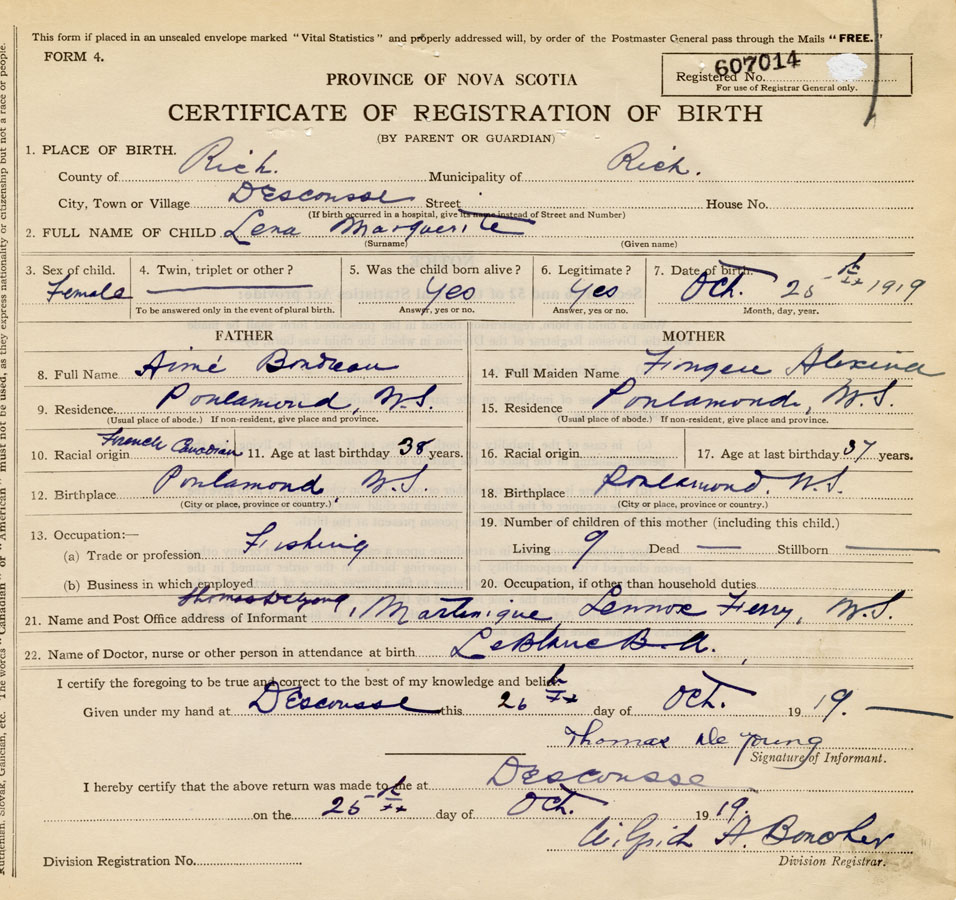 This form if placed in an unsealed envelope marked "Vital Statistics" and properly addressed will, by order of the Postmaster General pass through the Mails "FREE."
FORM 4.
607014
Registered No.
For use of Registrar General only.
PROVINCE OF NOVA SCOTIA
CERTIFICATE OF REGISTRATION OF BIRTH
(BY PARENT OR GUARDIAN)
1. PLACE OF BIRTH.
County of Rich. Municipality of Rich.
City, Town or Village Descousse Street House No.
(If birth occurred in a hospital, give its name instead of Street and Number)
2. FULL NAME OF CHILD Lena Marguerite
(Surname) (Given name)
3. Sex of child. 4. Twin, triplet or other? 5. Was the child born alive? 6. Legitimate? 7. Date of birth.
Female Yes Yes Oct. 25th 1919
To be answered only in the event of plural birth. Answer, yes or no. Answer, yes or no. Month, day, year.
FATHER MOTHER
8. Full Name Aimé 14. Full Maiden Name
9. Residence N.S. 15. Residence N.S.
(Usual place of abode.) If non-resident, give place and province. (Usual place of abode.) If non-resident, give place and province.
10. Racial origin French Canadian 11. Age at last birthday 38 years. 16. Racial origin 17. Age at last birthday 37 years.
12. Birthplace N.S. 18. Birthplace N.S.
(City or place, province or country.) (City or place, province or country.)
13. Occupation:— 19. Number of children of this mother (including this child.)
(a) Trade or profession Fishing Living 9 Dead — Stillborn —
(b) Business in which employed 20. Occupation, if other than household duties
21. Name and Post Office address of Informant Thomas DeYoung, Martinique Lennox Ferry, N.S.
22. Name of Doctor, nurse or other person in attendance at birth LeBlanc B.A.
I certify the foregoing to be true and correct to the best of my knowledge and belief.
Given under my hand at Descousse this 26th day of Oct. 1919.
Thomas De Young
Signature of Informant.
I hereby certify that the above return was made to me at Descousse
on the 26th day of Oct. 1919.
A.
Division Registration No. Division Registrar.